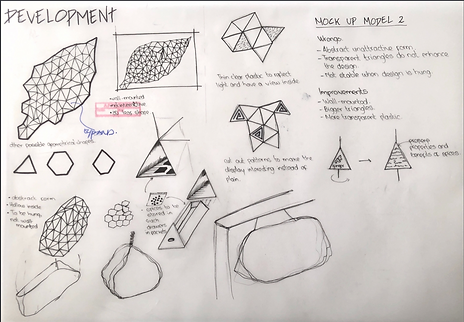 DEVELOPMENT
wall-mounted
EXPAND.
other possible geometrical shapes
• abstract form
• Hollow inside
• To be hung
not wall
mounted
spices to be
stored in
each
drawers
in packets
Thin clear plastic to reflect
light and have a view inside.
cut out patterns to make the
display interesting instead of
plain.
MOCK UP MODEL 2
Wrongs
- Abstract unattractive form
- Transparent triangles do not enhance
the design
- Not durable when design is hung
Improvements
- Wall-mounted
- Bigger triangles
- More transparent plastic
properties and
benefits of spices